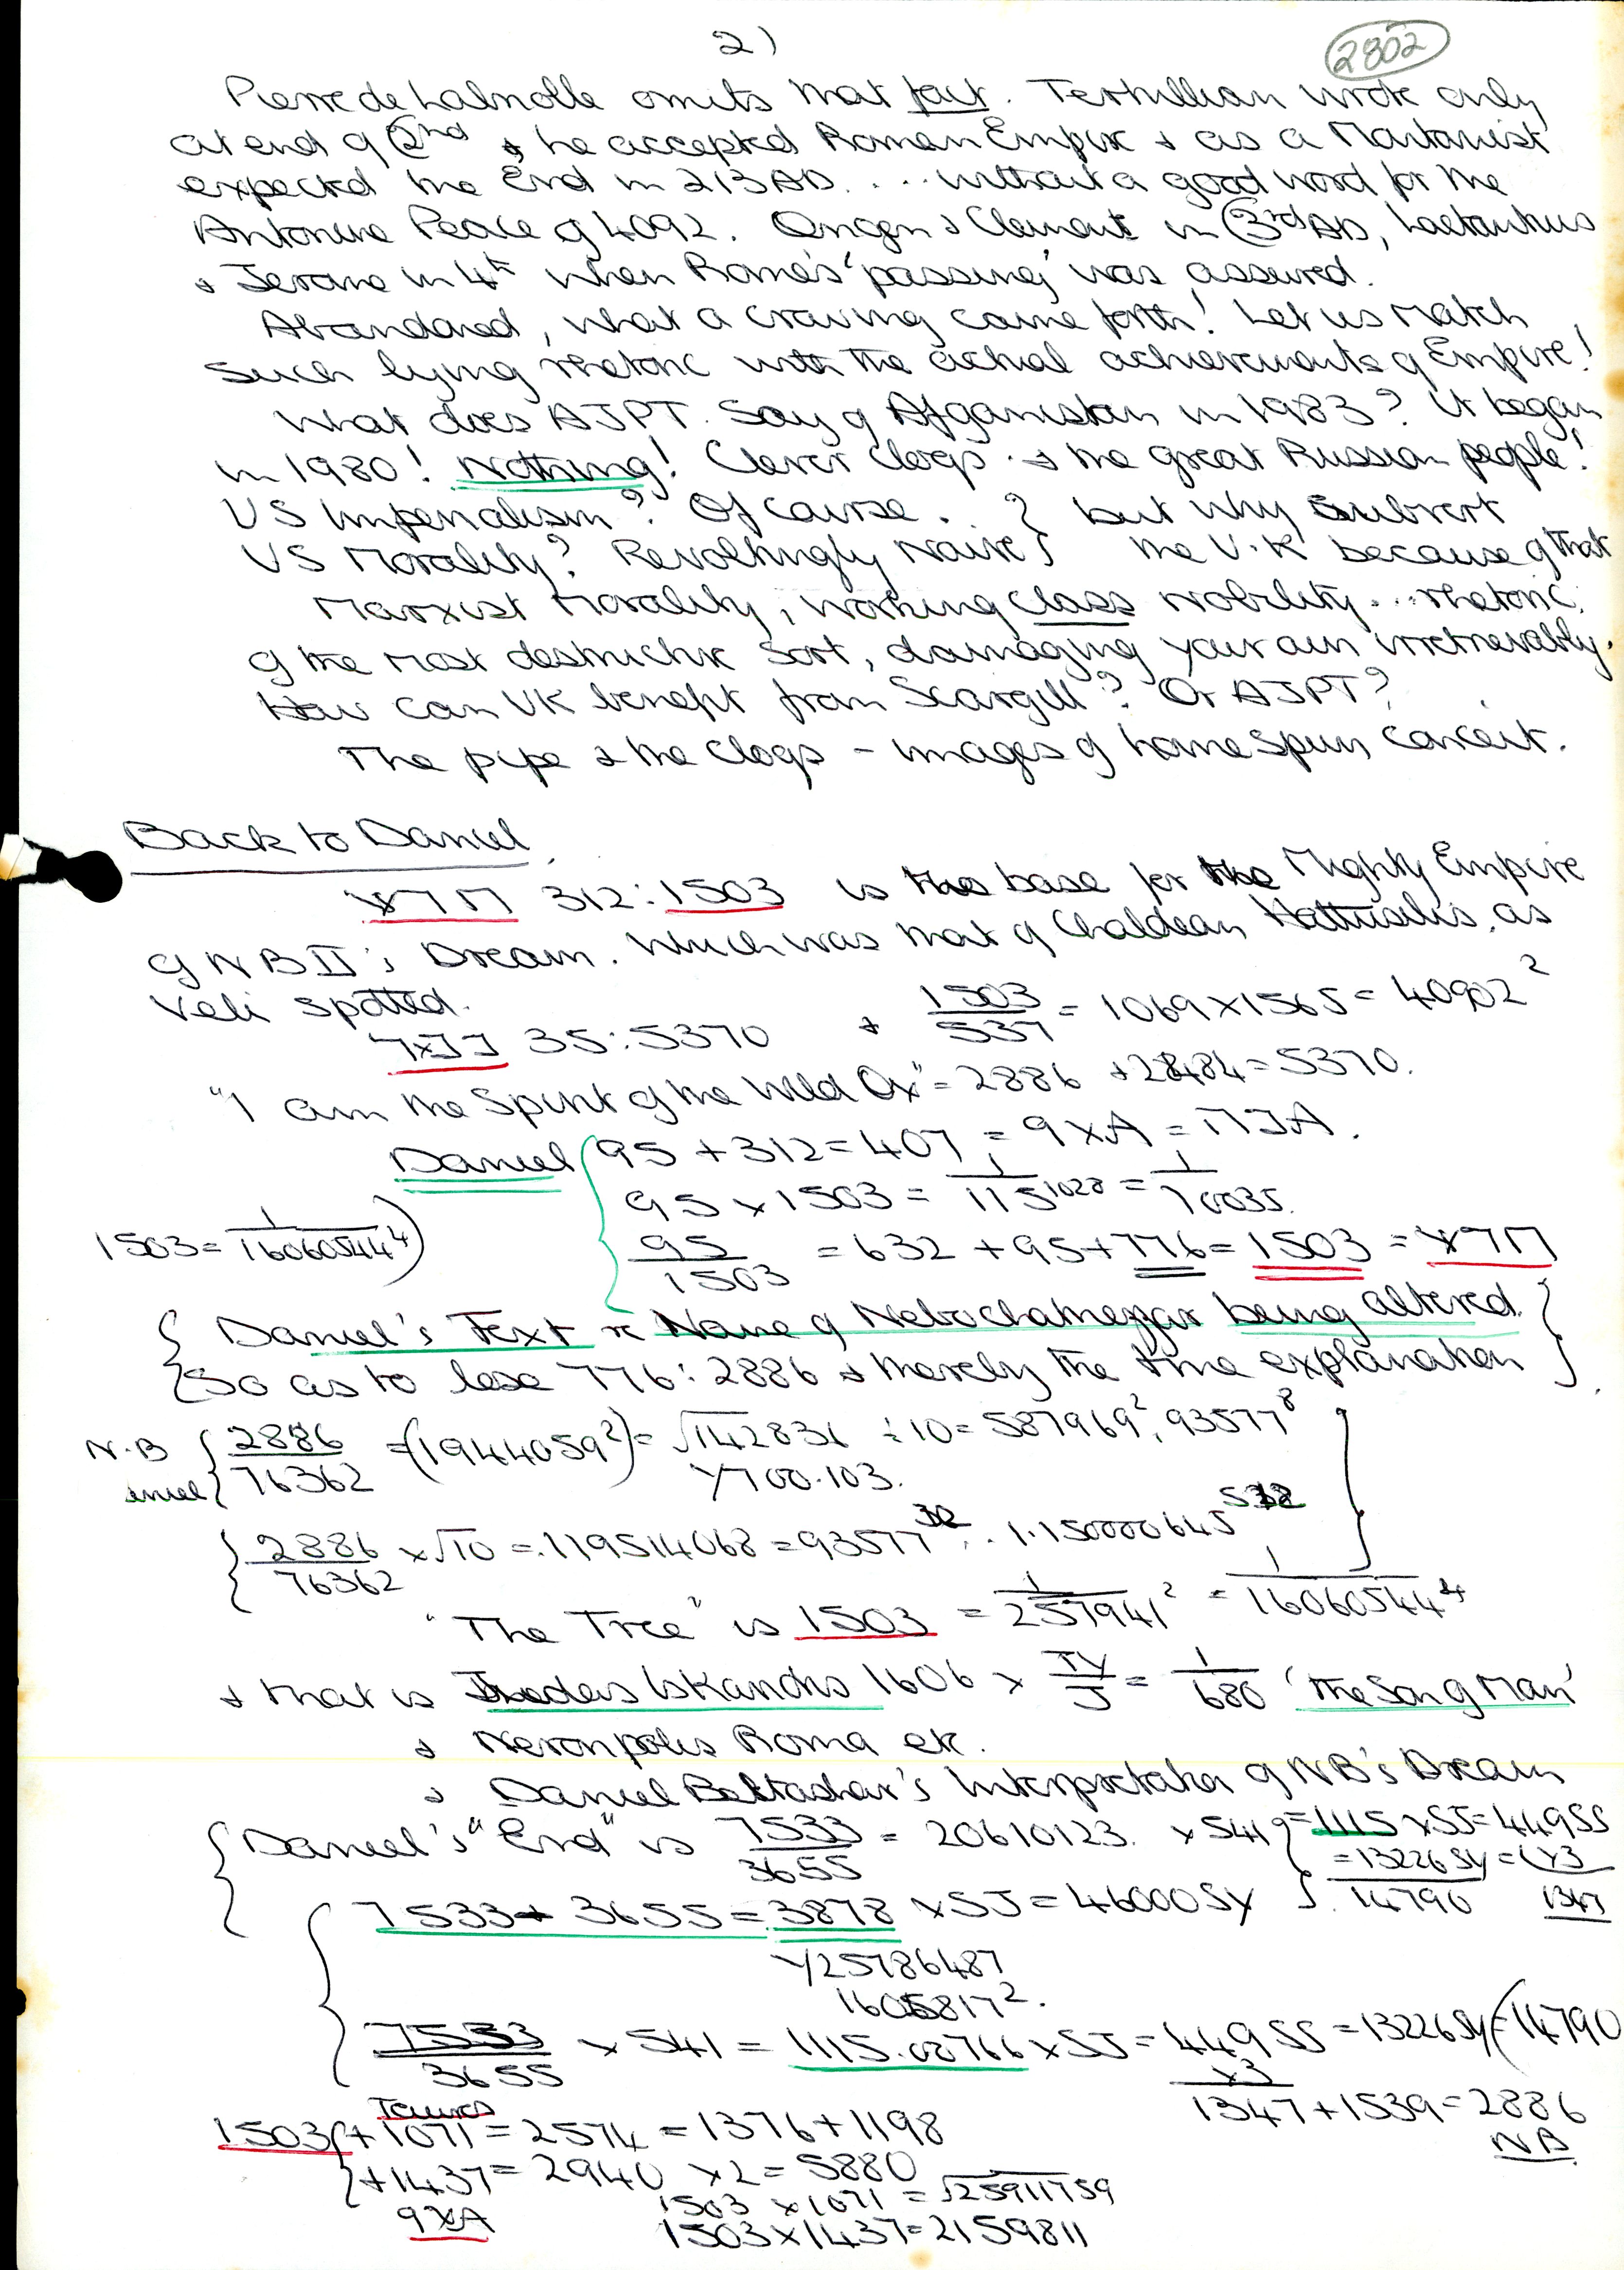 2)
2802
Pierre de Labriolle omits that fact. Tertullian wrote only
at end of 2nd & he accepted Roman Empire & as a Montanist
expected the End in 213 AD. ... without a good word for the
Antonine Peace of 4092. Origen & Clement in 3rd AD, Lactantius
& Jerome in 4th when Rome's 'passing' was assured.
Abandoned, what a craving came forth! Let us match
such lying rhetoric with the actual achievements of Empire!
What does AJPT. Say of Afganistan in 1983? It began
in 1980! Nothing! Clever Clogs & the great Russian people!
US Imperialism? Of course. .. } but why subvert
US Morality? Revoltingly Naive } the U.K because of that
Marxist Morality, working class nobility... rhetoric,
of the most destructive sort, damaging your own irretrievably.
How can UK benefit from Scargill? Or AJPT?
The pipe & the Clogs - images of home spun conceit.
Back to Daniel.
312:1503 is the base for the Mighty Empire
of NB II's Dream. Which was that of Chaldean Hattusilis, as
Veli spotted.
35:5370 & 1503/537 = 1069 x 1565 = 40902²
"I am the Spirit of the Wild Ox" = 2886 + 2484 = 5370.
Daniel { 95 + 312 = 407 = 9XA =
95 x 1503 = 1/115^1028 = 1/70035.
1503 = 1/16060544⁴)
95/1503 = 632 + 95 + 776 = 1503 =
{ Daniel's Text re Name of Nebochanezzar being altered. }
{ So as to lose 776:2886 & thereby the true explanation }
N.B { 2886/76362 = (1944059²) = √142831 ÷ 10 = 587969², 93577⁸
Y700.103.
{ 2886/76362 x √10 = .119514068 = 93577^32 . 1.150000645^512
"The Tree" is 1503 = 1/257941² = 1/16060544⁴
& that is Iskandus 1606 x JY/J = 1/680 'The Son of Man'
& Neronpolis Roma etc.
& Daniel Baltashar's Interpretation of NB's Dream
{ Daniel's "End" is 7533/3655 = 20610123. x 541 } = 1115 x SJ = 449SS
= 13226SY = (x3
14790 1347
{ 7533 + 3655 = 3878 x SJ = 46000SY
Y25786487
1605817².
7533/3655 x 541 = 1115.00766 x SJ = 449SS = 13226SY (=14790
x3
1347 + 1539 = 2886
NB
Taurus
1503 { + 1071 = 2574 = 1376 + 1198
{ + 1437 = 2940 x 2 = 5880
9XA
1503 x 1071 = √25911759
1503 x 1437 = 2159811